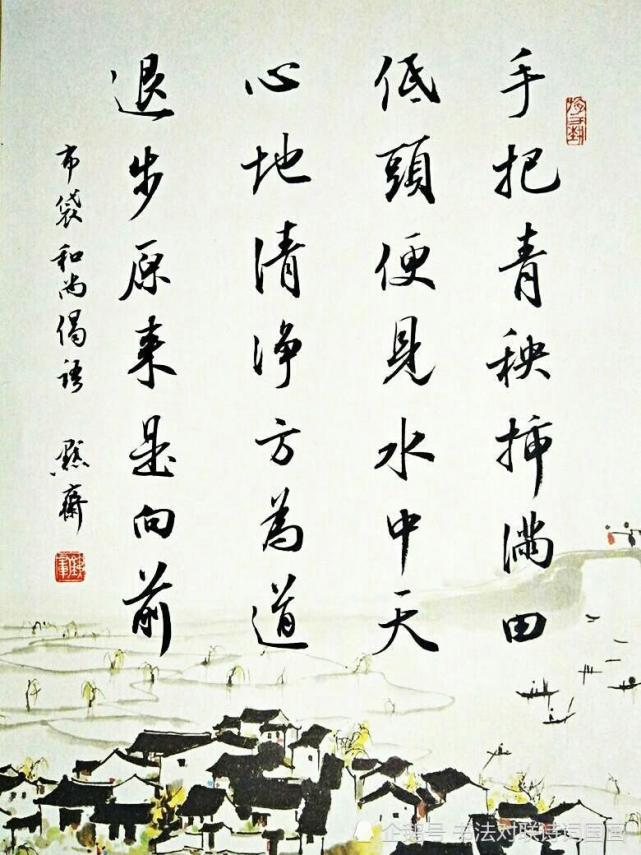 手把青秧插滿田
低頭便見水中天
心地清淨方為道
退步原来是向前
布袋和尚偈語
企鹅号 老法对联诗词国画